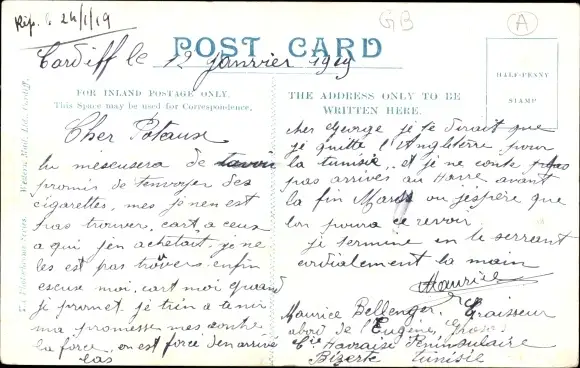 Rép. le 24/1/19
GB
A
Cardiff le 12 Janvier 1919
POST CARD
FOR INLAND POSTAGE ONLY.
This Space may be used for Correspondence.
THE ADDRESS ONLY TO BE
WRITTEN HERE.
HALF-PENNY
STAMP
Western Mail, Ltd., Cardiff.
Cher Poteaux
tu mescusera de tavoir
promis de tenvoyer des
cigarettes, mes je nen est
pas trouver, cart a ceux
a qui j'en achetait je ne
les est pas trouvers enfin
escuse moi, cart moi quand
je promet je tien a tenir
ma promesse mes contre
la force on est forcé d'en arrivé
las
cher George je te dirait que
je quitte l'Angleterre pour
la tunisie, et je ne conte pas
pas arrivés au Havre avant
la fin Mars ou j'espère que
lon poura ce revoir
je termine en te serrant
cordialement la main
Maurice
Maurice Bellenger. Graisseur
abord de l'Eugène Grosos
Cie Havraise Péninsulaire
Bizerte tunisie